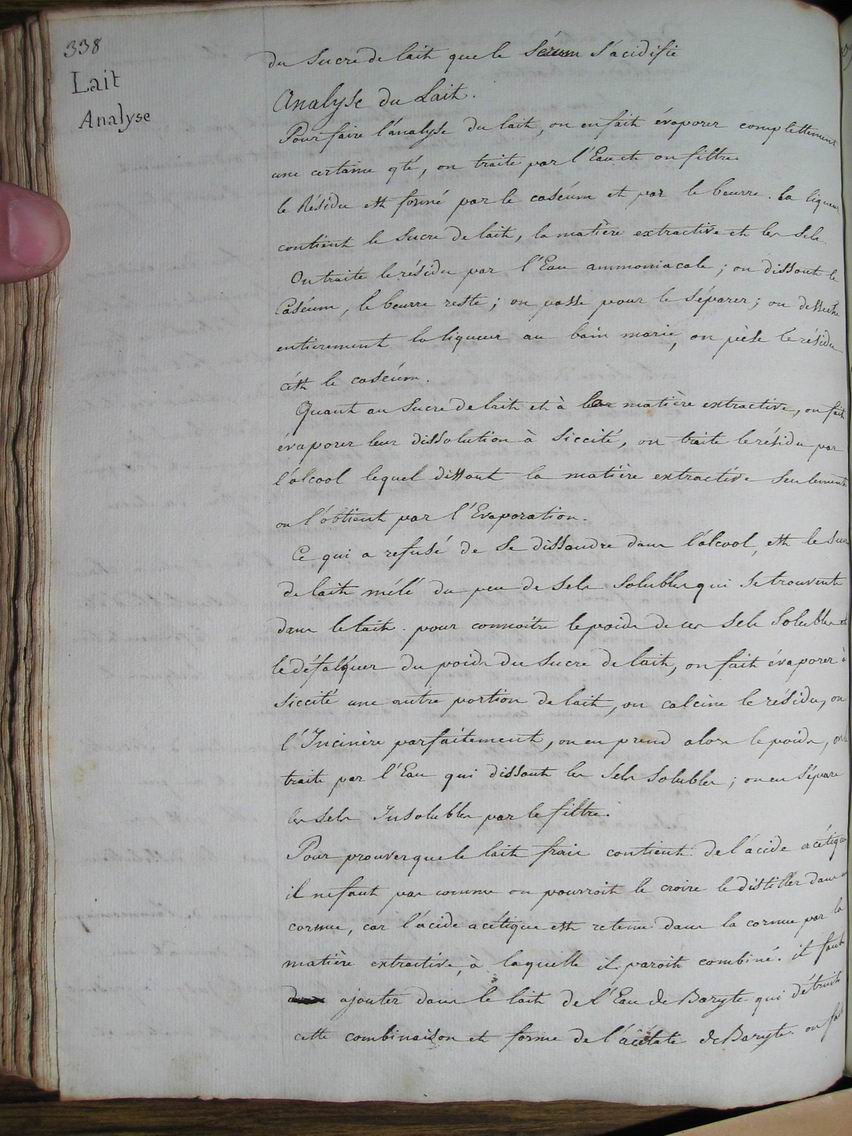 338
Lait
Analyse
du Sucre de lait que le Sérum s'acidifie
Analyse du Lait.
Pour faire l'analyse du lait, on en fait évaporer complettement
une certaine qté, on traite par l'Eau et on filtre
le Résidu est formé par le caséum et par le beurre. La liqueur
contient le Sucre de lait, la matière extractive et les Sels.
On traite le résidu par l'Eau ammoniacale ; on dissout le
Caséum, le beurre reste ; on passe pour le Séparer ; on desseche
entièrement la liqueur au bain marie, on pèse le résidu
c'est le caséum.
Quant au Sucre de lait et à la matière extractive, on fait
évaporer leur dissolution à Siccité, on traite le résidu par
l'alcool lequel dissout la matière extractive Seulement
on l'obtient par l'Evaporation.
Ce qui a refusé de Se dissoudre dans l'alcool, est le Sucre
de lait mélé du peu de Sels Solubles qui Se trouvent
dans le lait. pour connoitre le poids de ces Sels Solubles et
le défalquer du poids du Sucre de lait, on fait évaporer à
Siccité une autre portion de lait, on calcine le résidu, on
l'Incinère parfaitement, on en prend alors le poids, on
traite par l'Eau qui dissout les Sels Solubles ; on en Sépare
les Sels Insolubles par le filtre.
Pour prouver que le lait frais contient de l'acide acétique
il ne faut pas comme on pourroit le croire le distiller dans une
cornue, car l'acide acétique est retenu dans la cornue par la
matière extractive, à laquelle il paroit combiné. il faut
ajouter dans le lait de l'Eau de Baryte qui détruit
cette combinaison et forme de l'acétate de Baryte. on fait